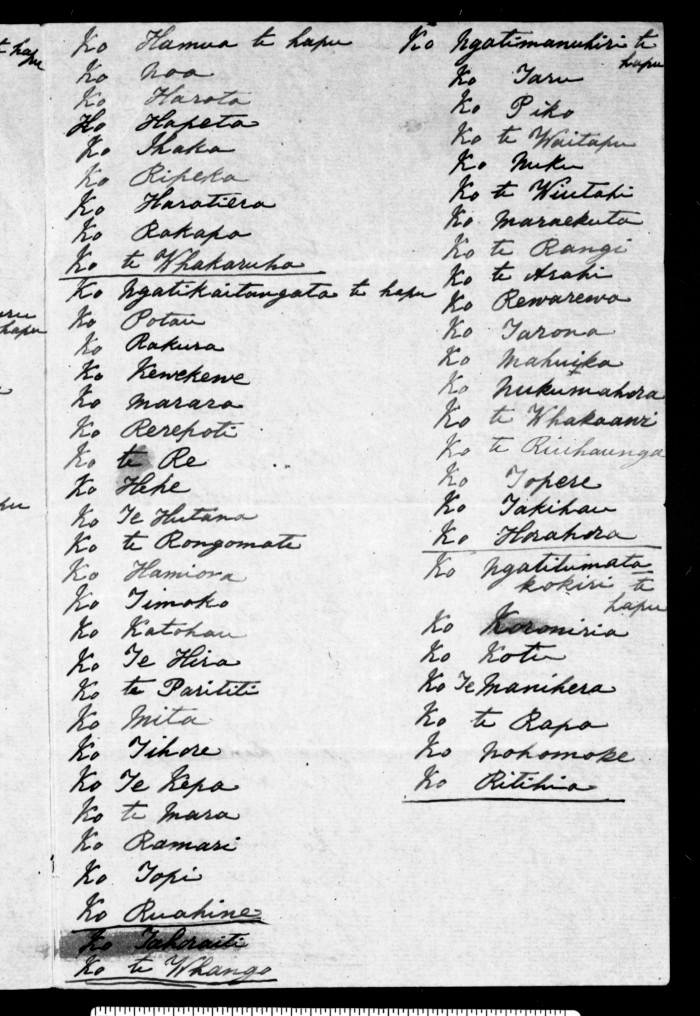 Ko Hamua te hapu
Ko Noa
Ko Harota
Ko Hapeta
Ko Ihaka
Ko Ripeka
Ko Haratiera
Ko Rakapa
Ko te Whakaruha
Ko Ngatikaitangata te hapu
Ko Potau
Ko Rakura
Ko Kewekewe
Ko Marara
Ko Rerepoti
Ko te Re
Ko Heke
Ko Te Hutana
Ko te Rongomate
Ko Hamiora
Ko Timoko
Ko Katohau
Ko Te Hira
Ko te Parititi
Ko Mita
Ko Tihore
Ko Te Kepa
Ko te Mara
Ko Ramari
Ko Topi
Ko Ruahine
Ko Tahoraiti
Ko te Whango
Ko Ngatimanuhiri te
hapu
Ko Taru
Ko Piko
Ko te Waitapu
Ko Nuku
Ko te Wiutahi
Ko Maraekuta
Ko te Rangi
Ko te Arahi
Ko Rewarewa
Ko Tarona
Ko Mahuika
Ko Nukumahora
Ko te Whakaawi
Ko te
Ko Topere
Ko Takihau
Ko Horahora
Ko Ngatitumata
kokiri te
hapu
Ko Koroniria
Ko Kotu
Ko Te Manihera
Ko te Rapa
Ko Nohomoke
Ko Ritihia
te hapu
hapu